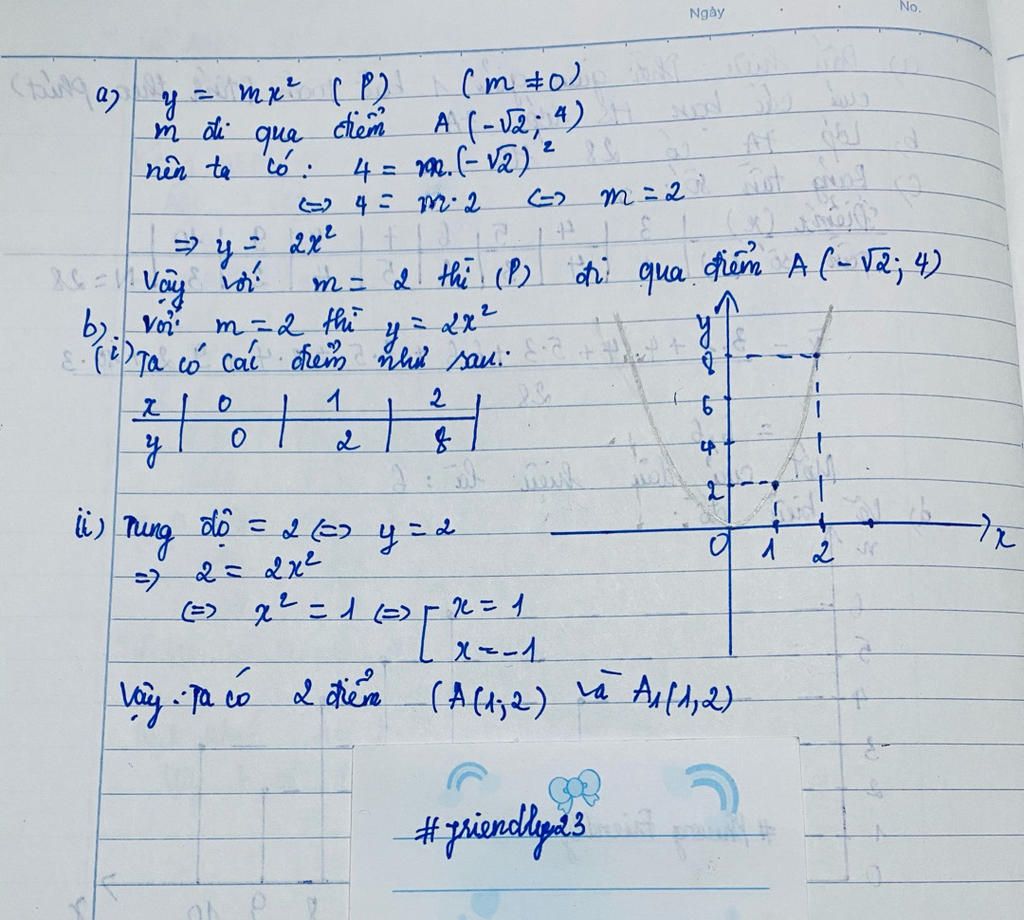 Ngày
No.
a) y = mx² (P) (m ≠ 0)
m đi qua điểm A (-√2; 4)
nên ta có: 4 = m.(-√2)²
⇔ 4 = m.2 ⇔ m = 2
⇒ y = 2x²
Vậy với m = 2 thì (P) đi qua điểm A (-√2; 4)
b) với m = 2 thì y = 2x²
(i) Ta có các điểm như sau:
x | 0 | 1 | 2
y | 0 | 2 | 8
y
8
6
4
2
O 1 2 x
ii) Tung độ = 2 ⇔ y = 2
⇒ 2 = 2x²
⇔ x² = 1 ⇔ [ x = 1
x = -1
Vậy: Ta có 2 điểm (A(1;2) và A₁(1,2)
#friendly23